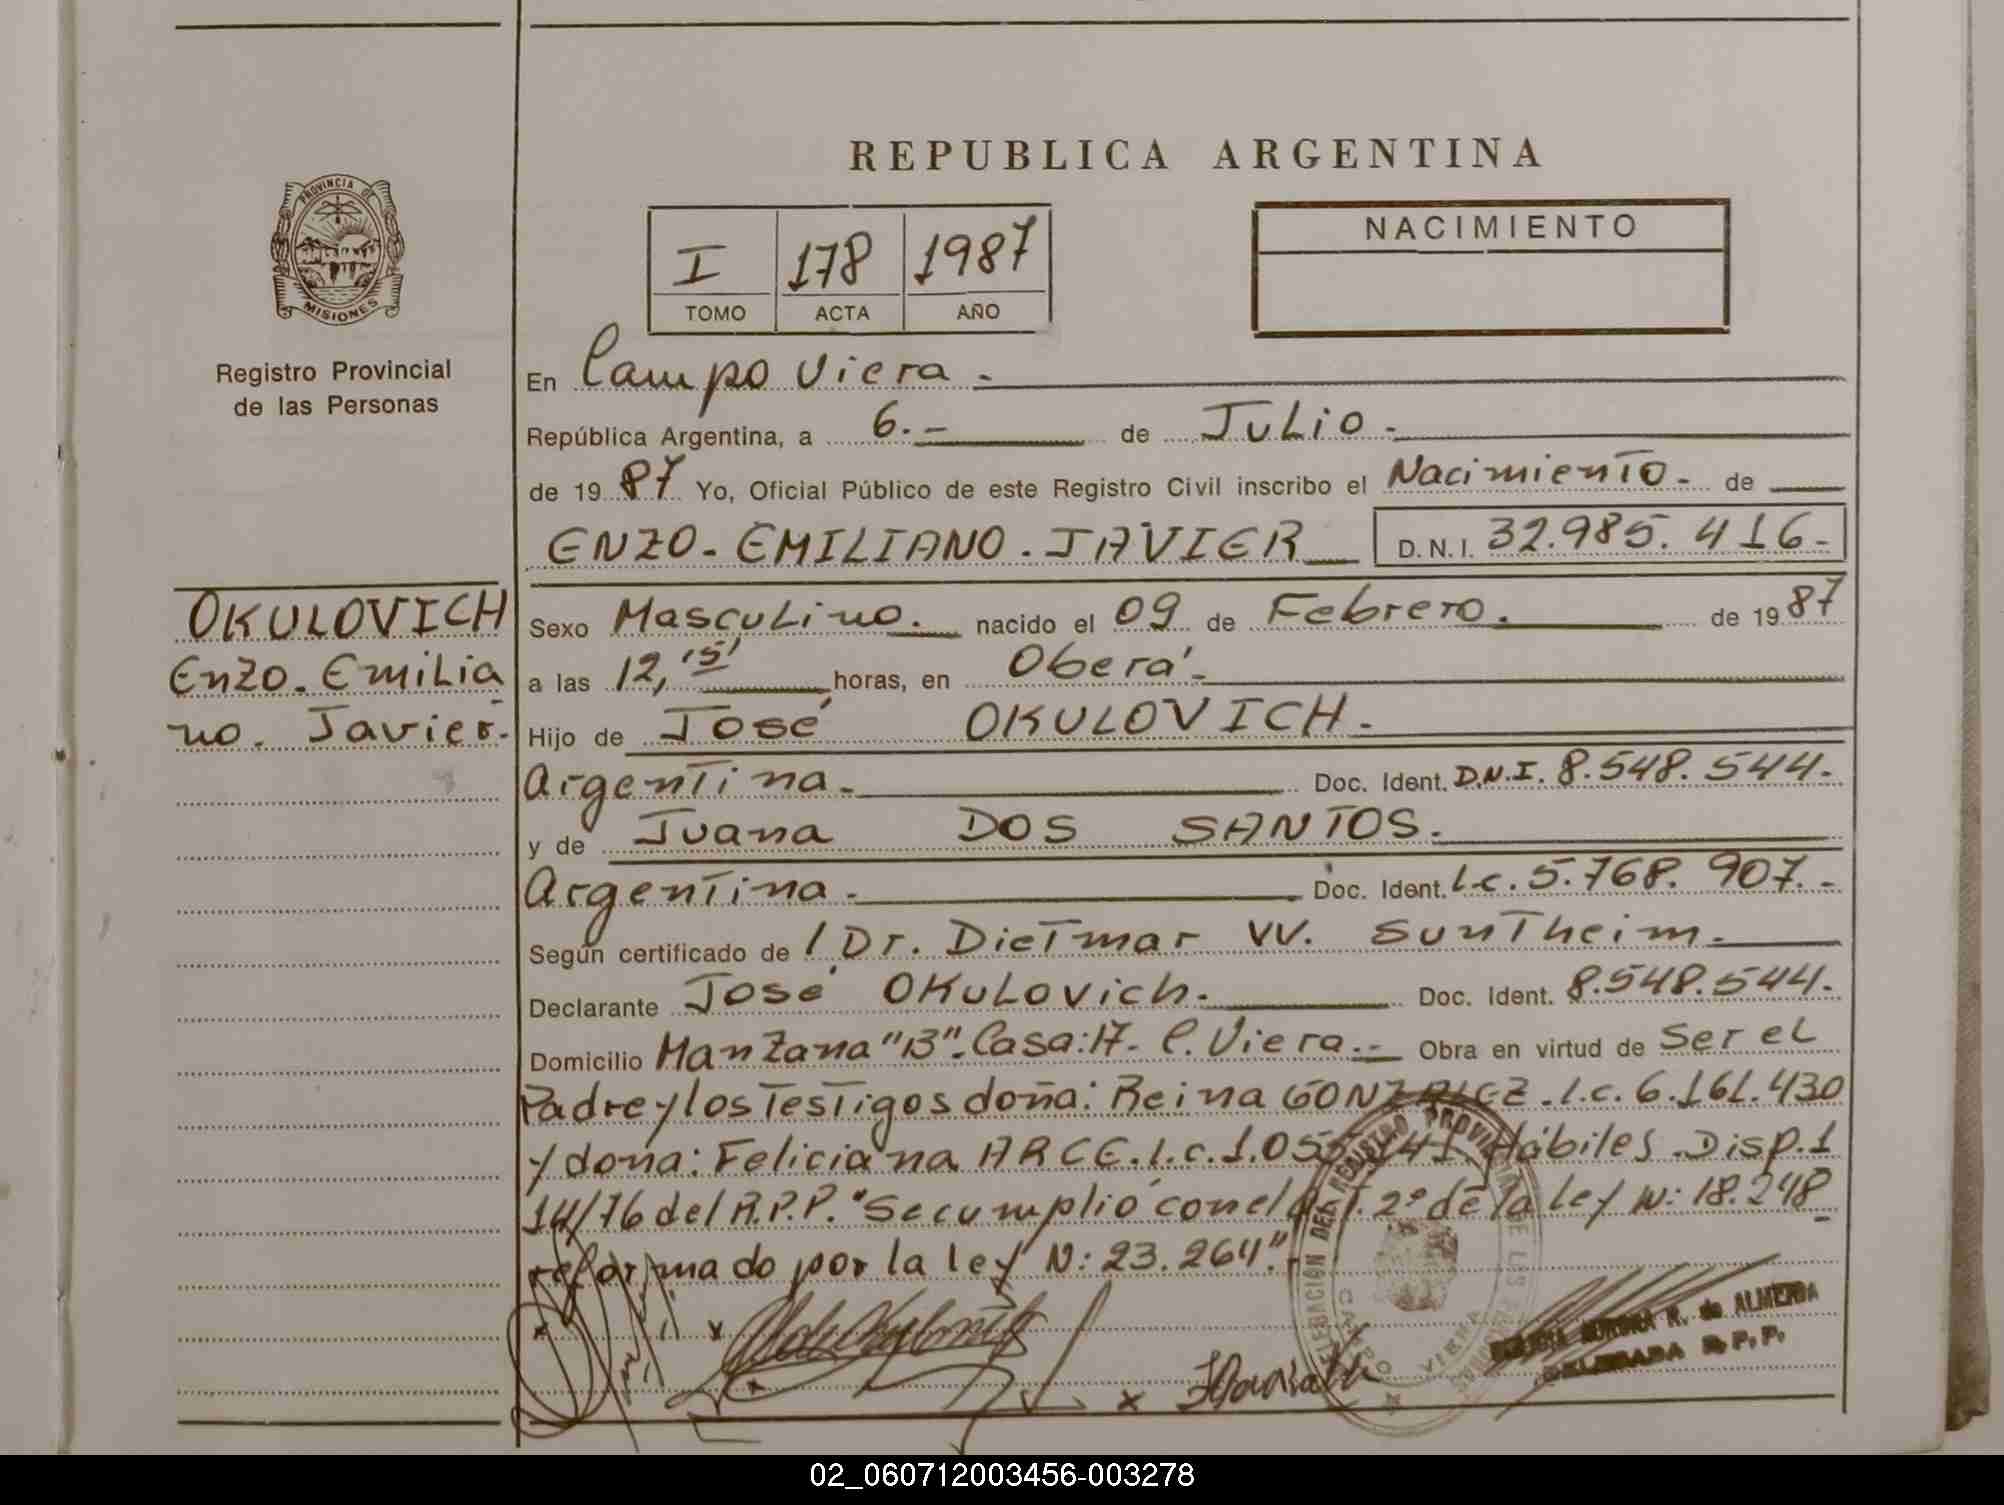 REPUBLICA ARGENTINA
PROVINCIA DE
MISIONES
Registro Provincial
de las Personas
I 178 1987
TOMO ACTA AÑO
NACIMIENTO
En Campo Viera.
República Argentina, a 6.- de Julio.
de 1987 Yo, Oficial Público de este Registro Civil inscribo el Nacimiento. de
ENZO. EMILIANO. JAVIER D.N.I. 32.985.416-
OKULOVICH
Enzo. Emilia
no. Javier.
Sexo Masculino. nacido el 09 de Febrero. de 1987
a las 12,15' horas, en Oberá.
Hijo de José OKULOVICH.
Argentina. Doc. Ident. D.N.I. 8.548.544.
y de Juana DOS SANTOS.
Argentina. Doc. Ident. l.c. 5.768.907.-
Según certificado de Dr. Dietmar W. Suntheim.
Declarante José Okulovich. Doc. Ident. 8.548.544.
Domicilio Manzana "B". Casa: 17. C. Viera.- Obra en virtud de Ser el
Padre y los Testigos doña: Reina GONZALEZ. l.c. 6.161.430
y doña: Feliciana ARCE. l.c. Hábiles. Disp. 1
14/76 del R.P.P. "Se cumplió con el Art. 2º de la ley N: 18.248
reformado por la ley N: 23.264".-
AURORA R. de ALMEIDA
DELEGADA R.P.P.
CAMPO VIERA
02_060712003456-003278